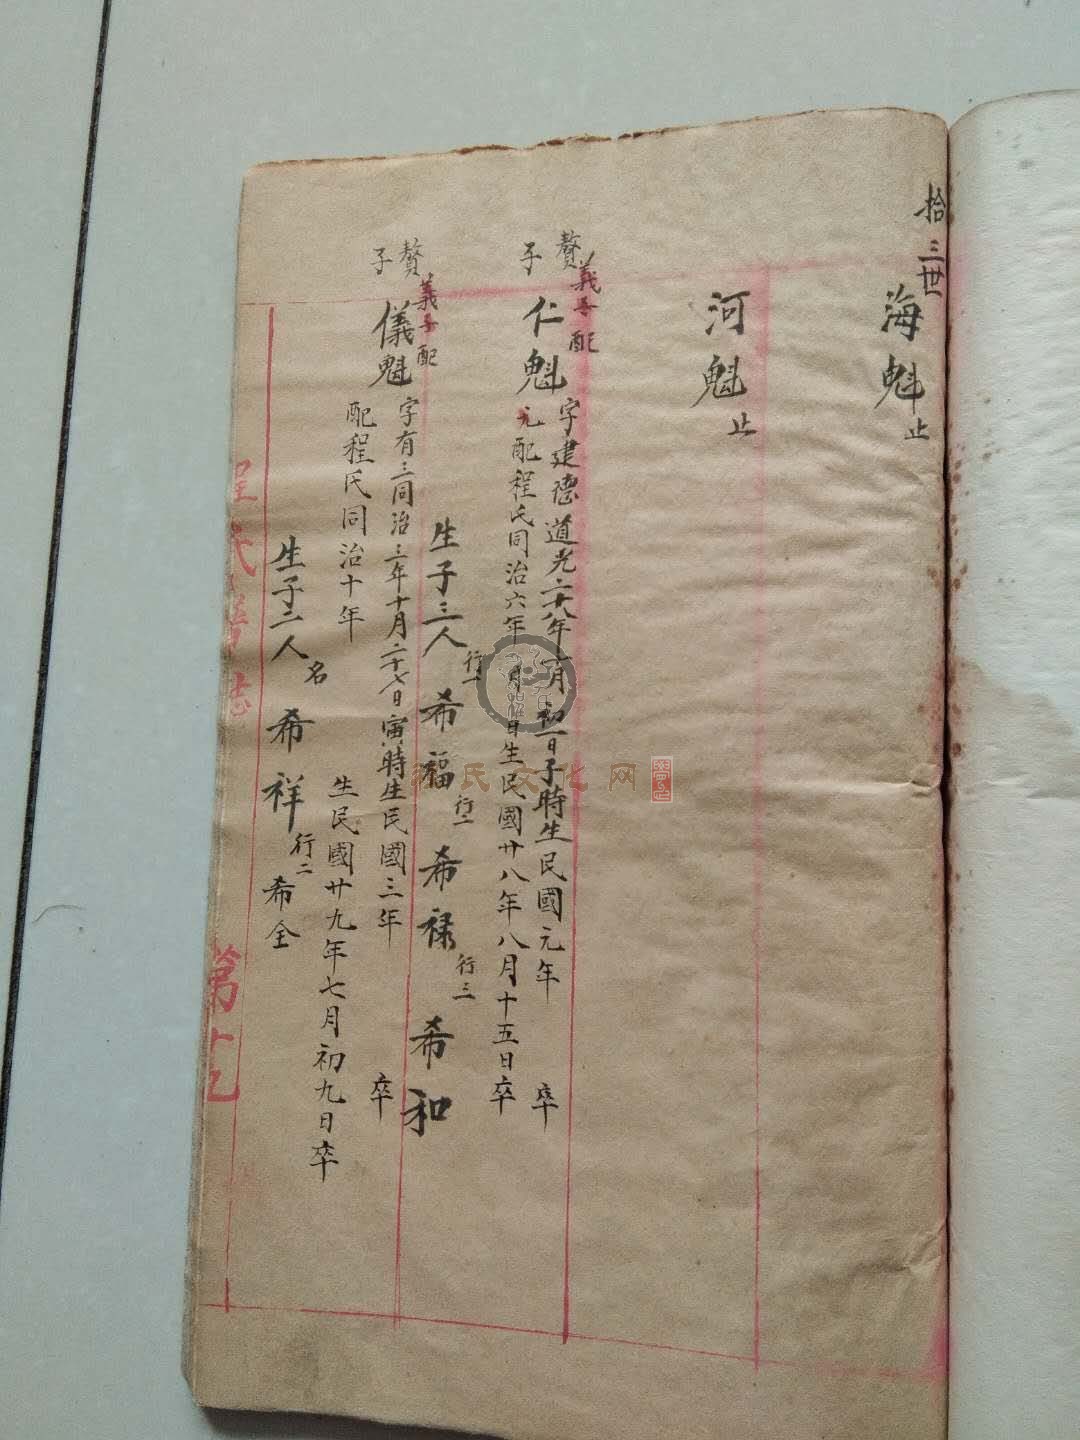 拾三世
海魁止
河魁止
贅子
義子配
仁魁
字建德道光二十八年二月初一日子時生民國元年 卒
元配程氏同治六年 月 日生民國廿八年八月十五日卒
生子三人 行一希福 行二希祿 行三希和
贅子
義子配
儀魁
字有三同治三年十月二十七日寅時生民國三年 卒
配程氏同治十年 生民國廿九年七月初九日卒
生子二人 名希祥 行二希全
程氏譜誌
第十
氏文化网